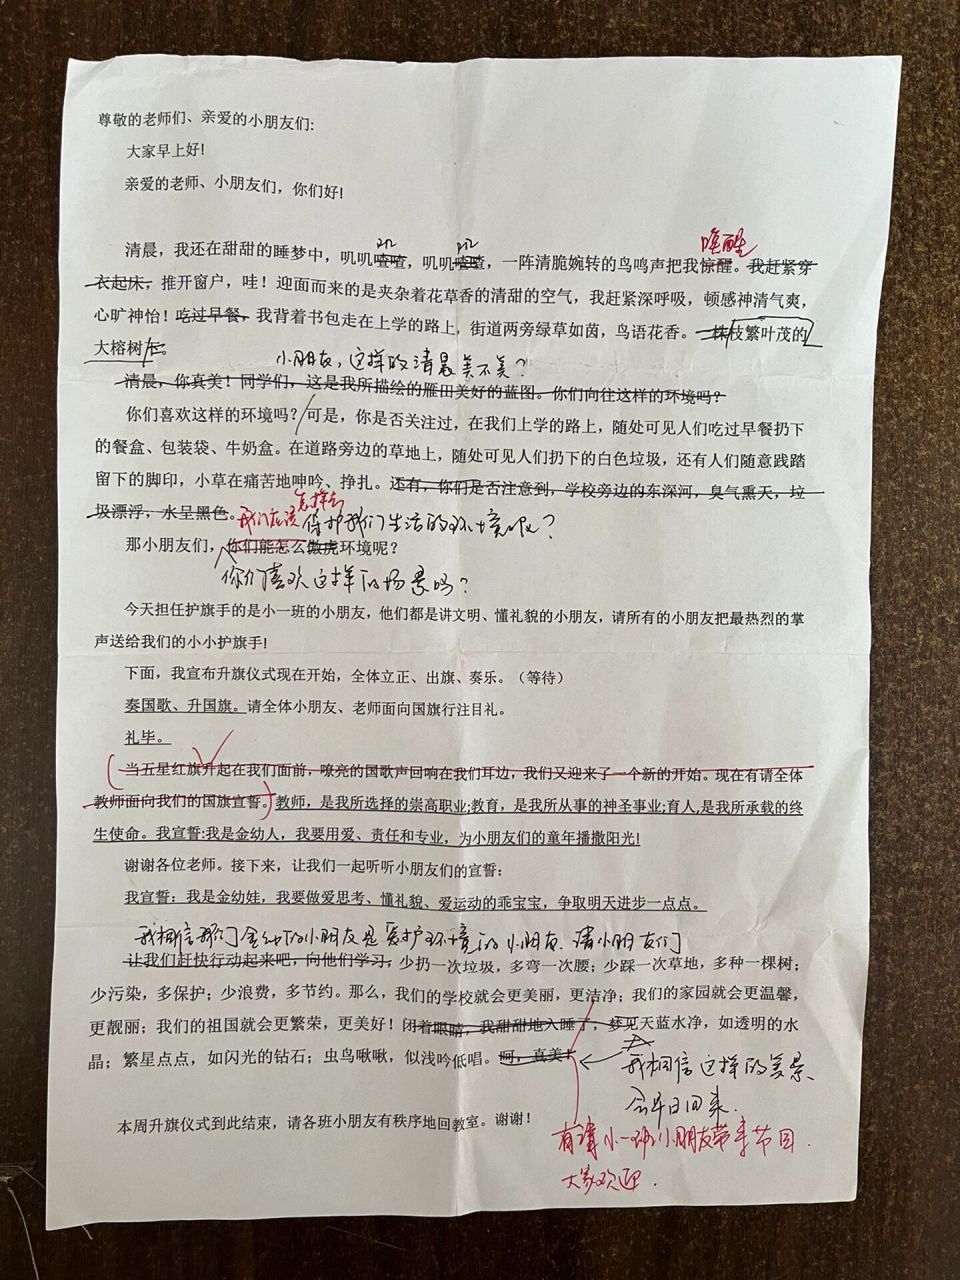 尊敬的老师们、亲爱的小朋友们:
大家早上好!
亲爱的老师、小朋友们，你们好!
唤醒
清晨，我还在甜甜的睡梦中，叽叽喳喳，叽叽喳喳，一阵清脆婉转的鸟鸣声把我惊醒。我赶紧穿
衣起床，推开窗户，哇！迎面而来的是夹杂着花草香的清甜的空气，我赶紧深呼吸，顿感神清气爽，
心旷神怡！吃过早餐，我背着书包走在上学的路上，街道两旁绿草如茵，鸟语花香。一株枝繁叶茂的
大榕树
小朋友，这样的清晨美不美？
清晨，你真美！同学们，这是我所描绘的雁田美好的蓝图。你们向往这样的环境吗？
你们喜欢这样的环境吗？可是，你是否关注过，在我们上学的路上，随处可见人们吃过早餐扔下
的餐盒、包装袋、牛奶盒。在道路旁边的草地上，随处可见人们扔下的白色垃圾，还有人们随意践踏
留下的脚印，小草在痛苦地呻吟、挣扎。还有，你们是否注意到，学校旁边的东深河，臭气熏天，垃
圾漂浮，水呈黑色。
我们应该怎样去保护我们生活的环境呢？
那小朋友们，你们能怎么做虎环境呢？
你们喜欢这样的场景吗？
今天担任护旗手的是小一班的小朋友，他们都是讲文明、懂礼貌的小朋友，请所有的小朋友把最热烈的掌
声送给我们的小小护旗手!
下面，我宣布升旗仪式现在开始，全体立正、出旗、奏乐。（等待）
奏国歌、升国旗。请全体小朋友、老师面向国旗行注目礼。
礼毕。
当五星红旗升起在我们面前，嘹亮的国歌声回响在我们耳边，我们又迎来了一个新的开始。现在有请全体
教师面向我们的国旗宣誓。教师，是我所选择的崇高职业;教育，是我所从事的神圣事业;育人,是我所承载的终
生使命。我宣誓:我是金幼人，我要用爱、责任和专业，为小朋友们的童年播撒阳光!
谢谢各位老师。接下来，让我们一起听听小朋友们的宣誓：
我宣誓：我是金幼娃，我要做爱思考、懂礼貌、爱运动的乖宝宝，争取明天进步一点点。
我相信我们金幼的小朋友是爱护环境的小朋友。请小朋友们
让我们赶快行动起来吧，向他们学习，少扔一次垃圾，多弯一次腰；少踩一次草地，多种一棵树；
少污染，多保护；少浪费，多节约。那么，我们的学校就会更美丽，更洁净；我们的家园就会更温馨，
更靓丽；我们的祖国就会更繁荣，更美好！闭着眼睛，我甜甜地入睡了，梦见天蓝水净，如透明的水
晶；繁星点点，如闪光的钻石；虫鸟啾啾，似浅吟低唱。啊，真美！
我相信这样的美景
会早日回来.
本周升旗仪式到此结束，请各班小朋友有秩序地回教室。谢谢！
有请小一班小朋友带来节目.
大家欢迎.